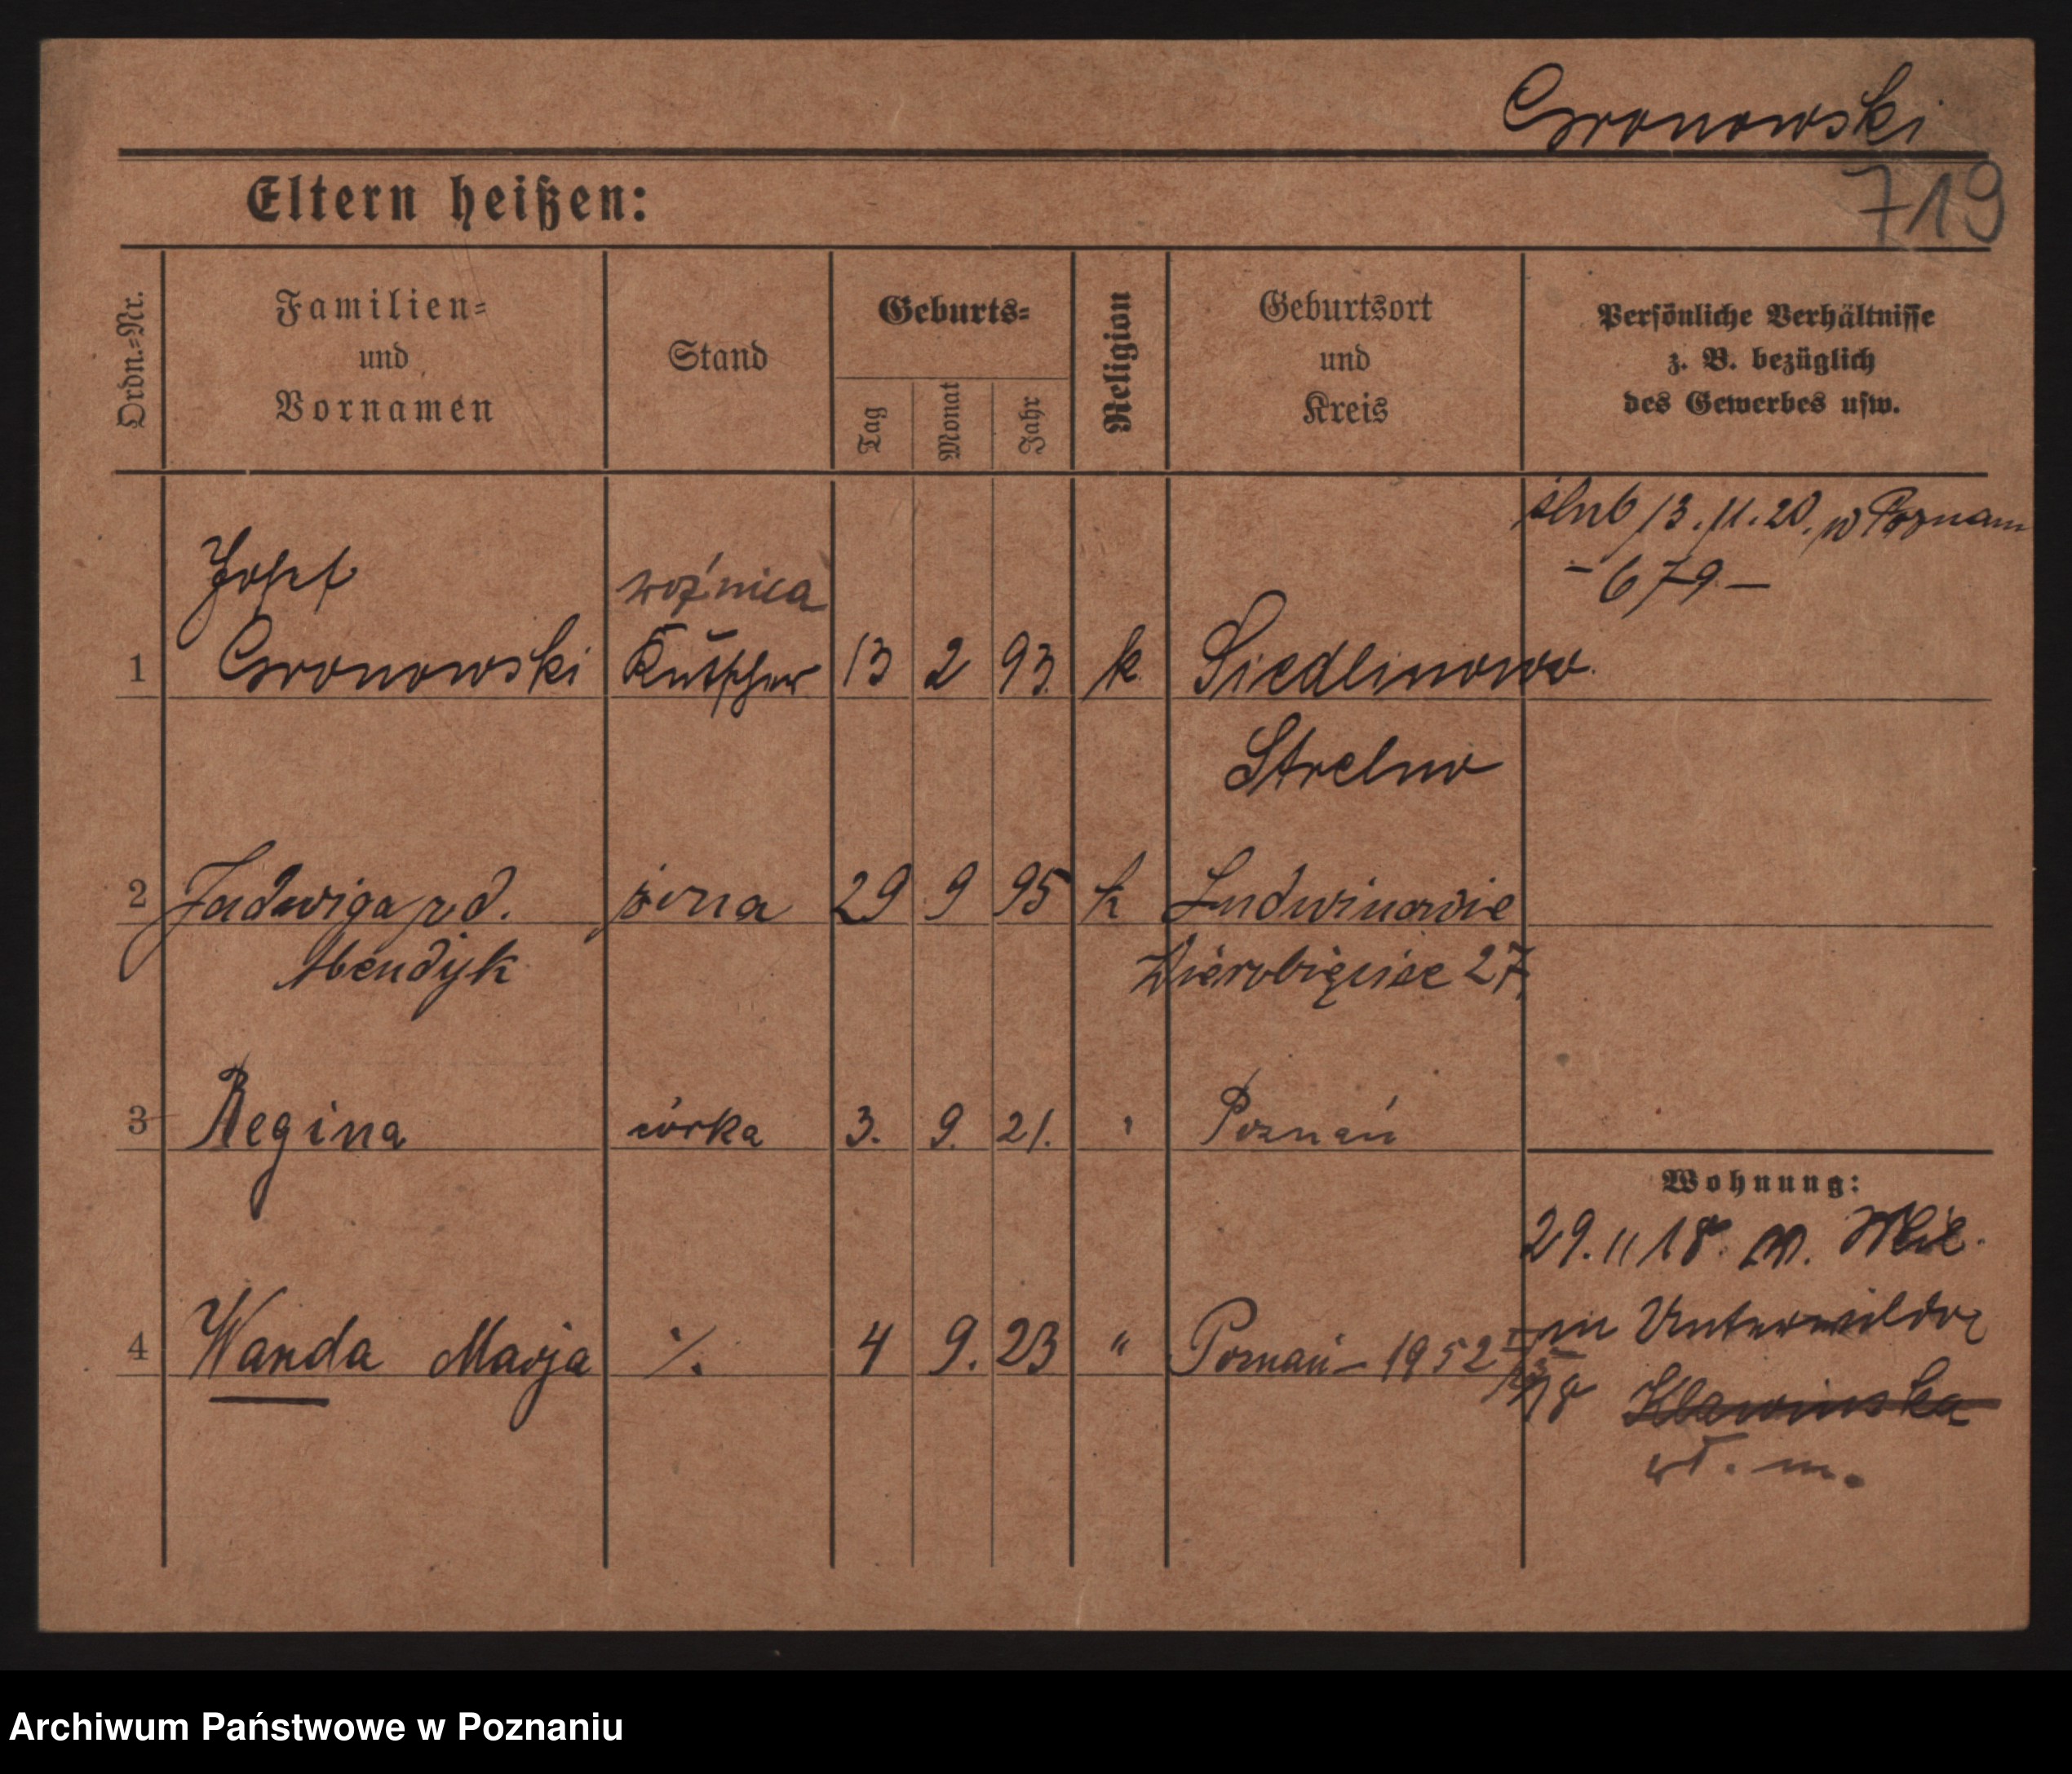 Gronowski
719
Eltern heißen:
Ordn.=Nr.
Familien=
und
Vornamen
Stand
Geburts=
Tag
Monat
Jahr
Religion
Geburtsort
und
Kreis
Persönliche Verhältnisse
z. B. bezüglich
des Gewerbes usw.
ślub 13.11.20. w Poznaniu
- 679 -
Josef
woźnica
1 Gronowski Kutscher 13 2 93. k. Siedlimowo.
Strelno
2 Jadwiga rd. żona 29 9 95 k Ludwinowie
Abendyk 27
3 Regina córka 3. 9. 21. Poznań
Wohnung:
29. 11 18.
4 Wanda Marja ./. 4 9. 23 " Poznań - 1952
in Unterwilda
wł. m.
Archiwum Państwowe w Poznaniu